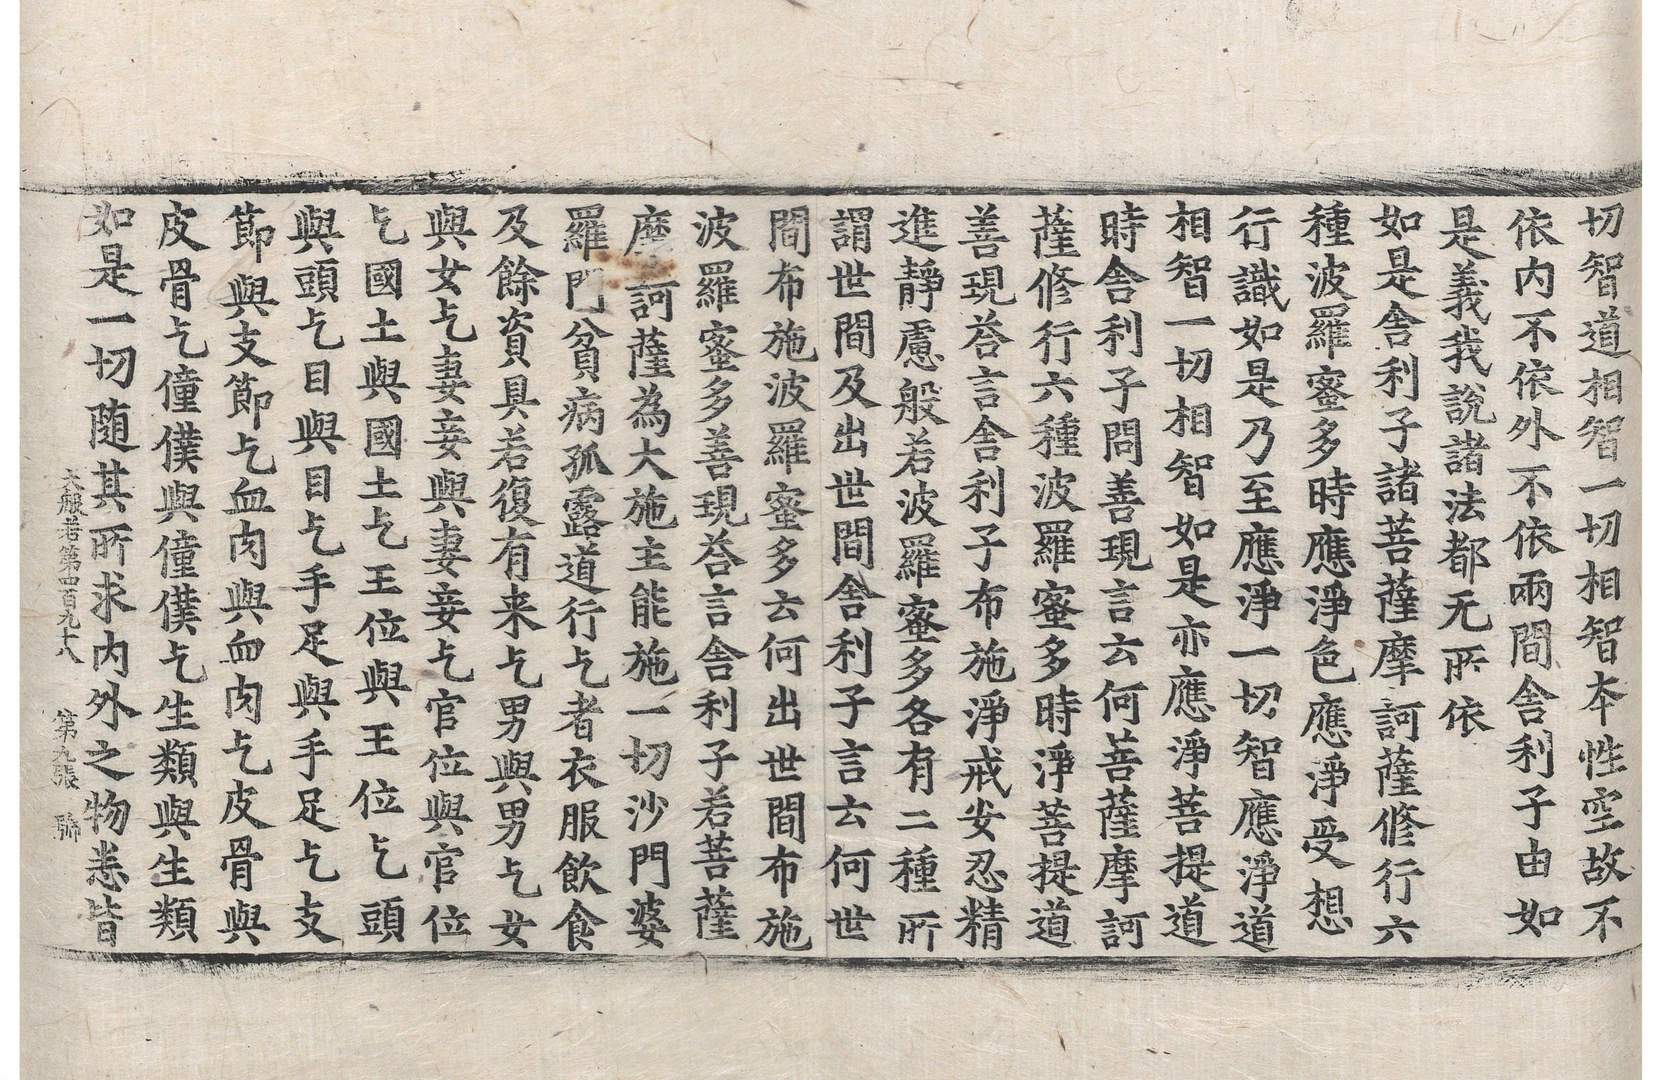 切智道相智一切相智本性空故不
依内不依外不依兩間舍利子由如
是義我說諸法都无所依
如是舍利子諸菩薩摩訶薩修行六
種波羅蜜多時應淨色應淨受想
行識如是乃至應淨一切智應淨道
相智一切相智如是亦應淨菩提道
時舍利子問善現言云何菩薩摩訶
薩修行六種波羅蜜多時淨菩提道
善現荅言舍利子布施淨戒安忍精
進靜慮般若波羅蜜多各有二種所
謂世間及出世間舍利子言云何世
間布施波羅蜜多云何出世間布施
波羅蜜多善現荅言舍利子若菩薩
摩訶薩為大施主能施一切沙門婆
羅門貧病孤露道行乞者衣服飲食
及餘資具若復有来乞男與男乞女
與女乞妻妾與妻妾乞官位與官位
乞國土與國土乞王位與王位乞頭
與頭乞目與目乞手足與手足乞支
節與支節乞血肉與血肉乞皮骨與
皮骨乞僮僕與僮僕乞生類與生類
如是一切随其所求内外之物悉皆
大般若第四百九十八 第九張